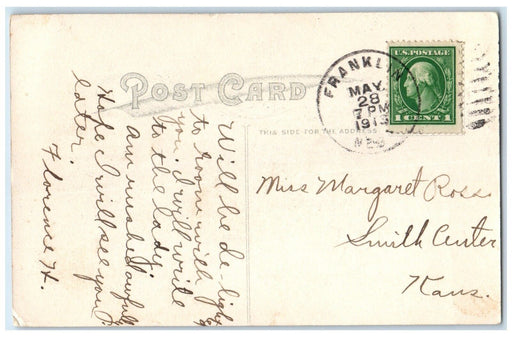 POST CARD
THIS SIDE FOR THE ADDRESS
FRANKLIN
MAY
28
7 PM
1913
NEB
U.S. POSTAGE
1 CENT 1
Will be de-light
to room with
you. I will write
to the lady.
am rushed awfully
Hope I will see you
later.
Florence H.
Miss Margaret Ross
Smith Center
Kans.